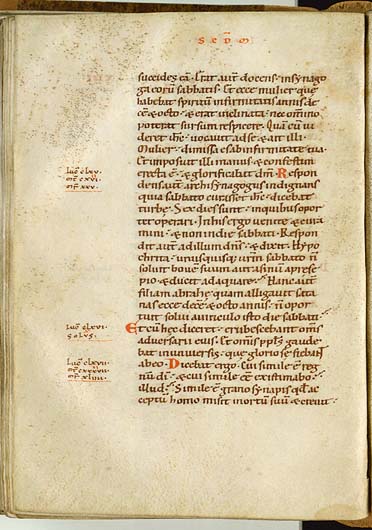 succides eā. Erat aut̄ docens in synago
ga eorū sabbatis. Et ecce mulier quę
habebat spiritū infirmitatis annis de
cē & octo. & erat inclinata. nec omnino
poterat sursum respicere. Quā cū vi
deret ihc̄. vocavit ad se. & ait illi.
Mulier. dimissa es ab infirmitate tua.
Et imposuit illi manus. & confestim
erecta ē. & glorificabat dm̄. Respon
dens aut̄ archisynagogus indignans
quia sabbato curasset ihc̄. dicebat
turbę. Sex dies sunt. in quibus opor
tet operari. In his ergo venite & cura
mini. & non in die sabbati. Respon
dit aut̄ ad illum dn̄s. & dixit. Hypo
chrita. unusquisque vrm̄ sabbato n̄
solvit bovē suum aut asinū a prese
pio. & ducit adaquare. Hanc aut̄
filiam abrahę quam alligavit sata
nas ecce decē & octo annis. n̄ opor
tuit solvi a vinculo isto die sabbati.
Et cū hęc diceret. erubescebant om̄s
adversarii eius. Et om̄is ppl̄s gaude
bat in universis. quę gloriose fiebant
ab eo. Dicebat ergo. Cui simile ē reg
nū dī. & cui simile eē existimabo
illud. Simile ē grano synapis qd̄ ac
ceptū homo misit in ortū suū & crevit.
luc̄ clxv.
luc̄ clxvi.
solvs.
luc̄ clxvii.